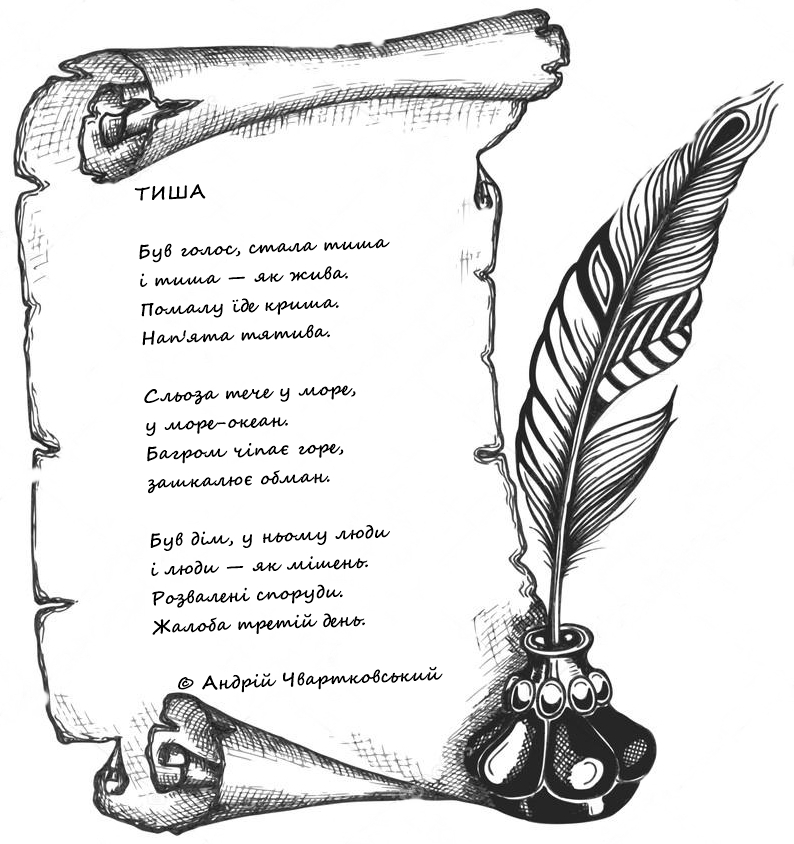 ТИША
Був голос, стала тиша
і тиша — як жива.
Помалу їде криша.
Нап'ята тятива.
Сльоза тече у море,
у море-океан.
Багром чіпає горе,
зашкалює обман.
Був дім, у ньому люди
і люди — як мішень.
Розвалені споруди.
Жалоба третій день.
© Андрій Чвартковський